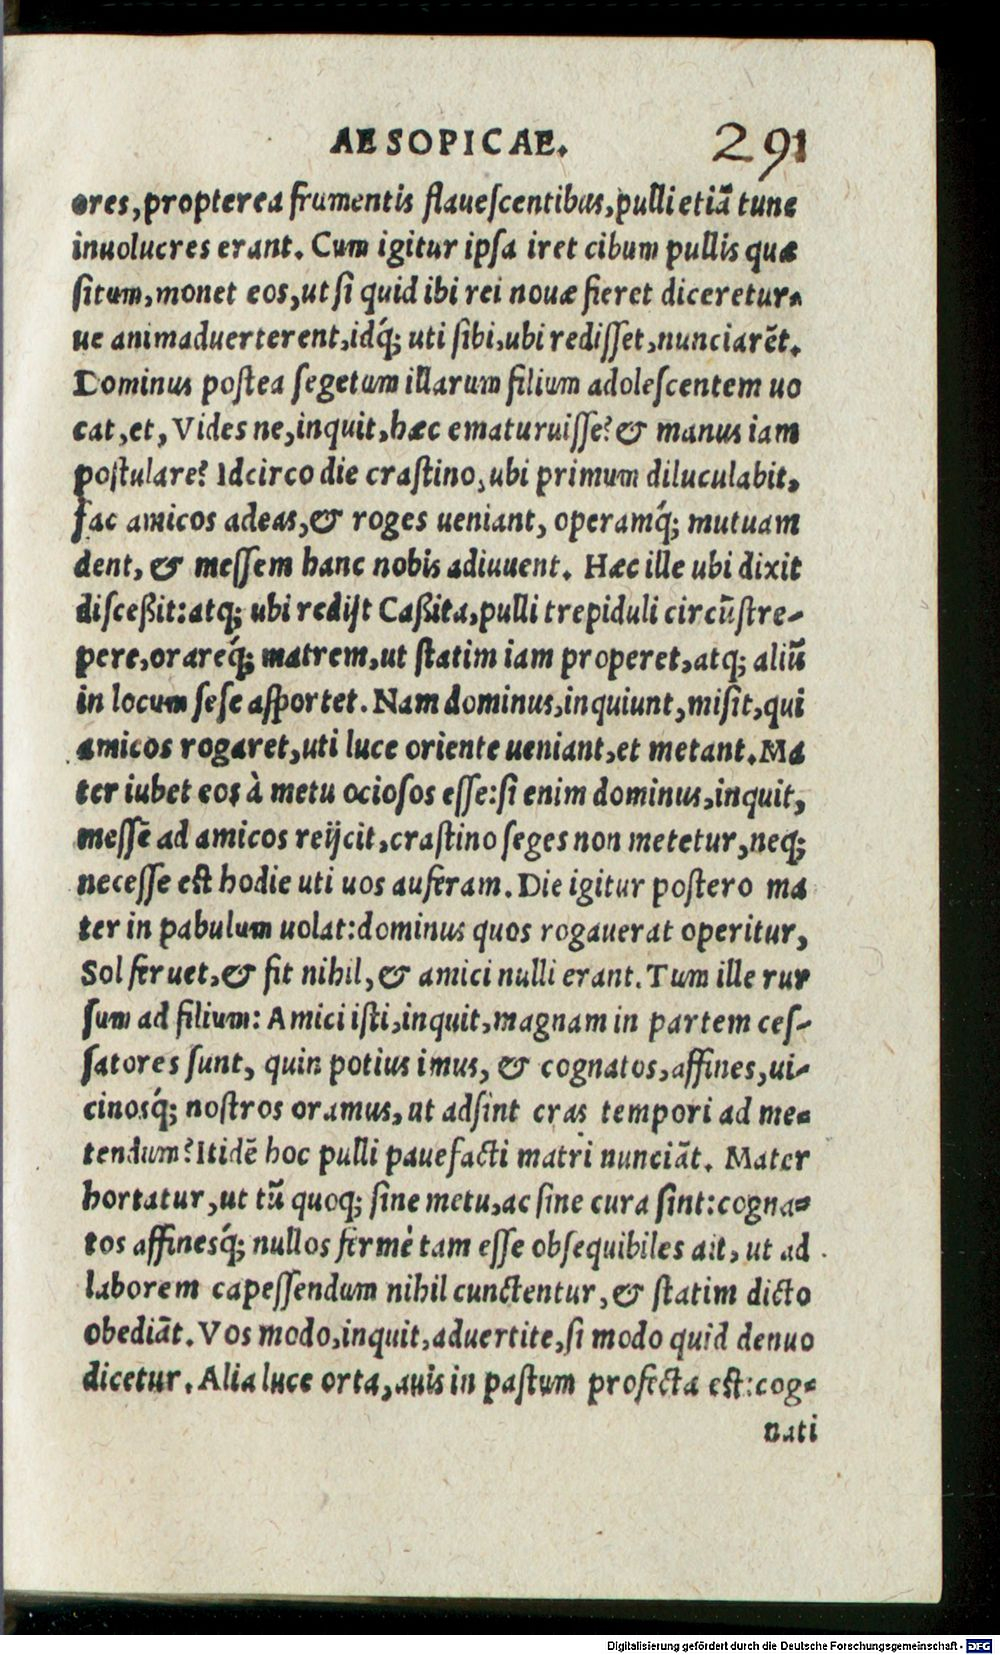 AESOPICAE. 291
ores, propterea frumentis flauescentibus, pulli etiā tunc
inuolucres erant. Cum igitur ipsa iret cibum pullis quæ
situm, monet eos, ut si quid ibi rei nouæ fieret diceretur-
ue animaduerterent, idq́; uti sibi, ubi redisset, nunciarēt.
Dominus postea segetum illarum filium adolescentem uo
cat, et, Vides ne, inquit, hæc ematuruisse? & manus iam
postulare? Idcirco die crastino, ubi primum diluculabit,
fac amicos adeas, & roges ueniant, operamq́; mutuam
dent, & messem hanc nobis adiuuent. Hæc ille ubi dixit
disceßit: atq; ubi redijt Caßita, pulli trepiduli circūstre-
pere, orareq́; matrem, ut statim iam properet, atq; aliū
in locum sese asportet. Nam dominus, inquiunt, misit, qui
amicos rogaret, uti luce oriente ueniant, et metant. Ma
ter iubet eos à metu ociosos esse: si enim dominus, inquit,
messē ad amicos reijcit, crastino seges non metetur, neq;
necesse est hodie uti uos auferam. Die igitur postero ma
ter in pabulum uolat: dominus quos rogauerat operitur,
Sol feruet, & fit nihil, & amici nulli erant. Tum ille rur
sum ad filium: Amici isti, inquit, magnam in partem ces-
satores sunt, quin potius imus, & cognatos, affines, ui-
cinosq́; nostros oramus, ut adsint cras tempori ad me-
tendum? Itidē hoc pulli pauefacti matri nunciāt. Mater
hortatur, ut tū quoq; sine metu, ac sine cura sint: cogna-
tos affinesq́; nullos fermè tam esse obsequibiles ait, ut ad
laborem capessendum nihil cunctentur, & statim dicto
obediāt. Vos modo, inquit, aduertite, si modo quid denuo
dicetur. Alia luce orta, auis in pastum profecta est: cog-
nati
Digitalisierung gefördert durch die Deutsche Forschungsgemeinschaft - DFG